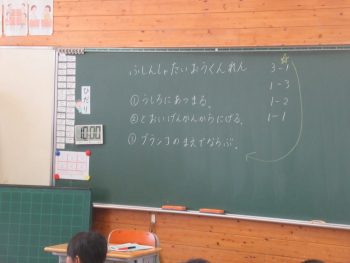 ふしんしゃたいおうくんれん 3-1
1-3
①うしろにあつまる。 1-2
②とおいげんかんからにげる。 1-1
③ブランコのまえでならぶ。
ひだり
10:00